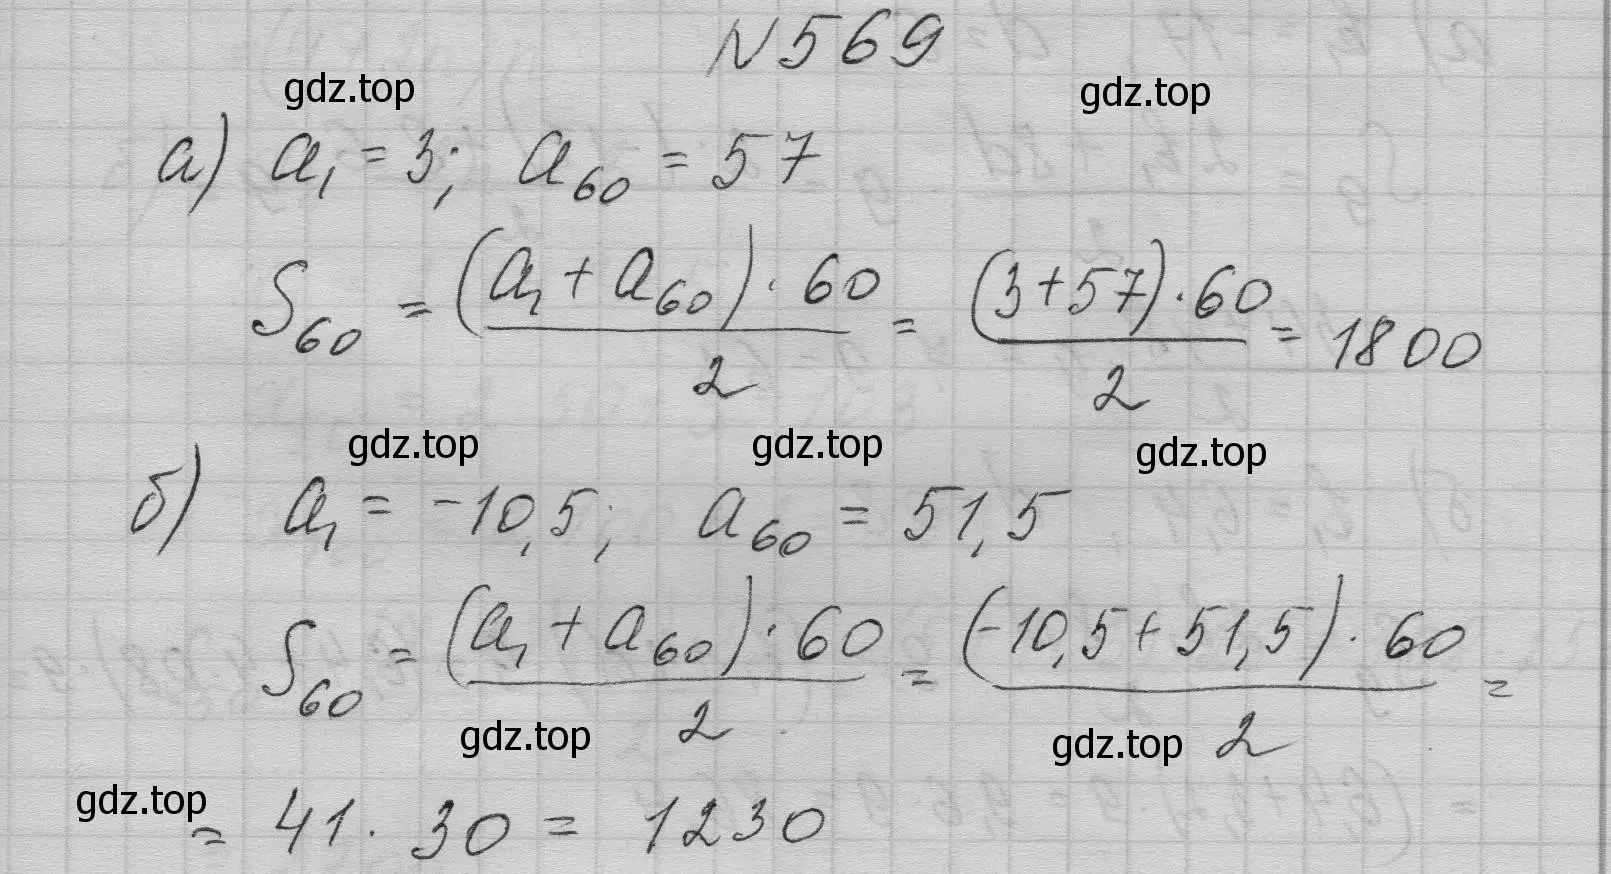 N 569
gdz.top gdz.top
а) a₁ = 3; a₆₀ = 57
S₆₀ = (a₁ + a₆₀) · 60 / 2 = (3 + 57) · 60 / 2 = 1800
gdz.top gdz.top gdz.top
б) a₁ = -10,5; a₆₀ = 51,5
S₆₀ = (a₁ + a₆₀) · 60 / 2 = (-10,5 + 51,5) · 60 / 2 =
gdz.top gdz.top
gdz.top
= 41 · 30 = 1230